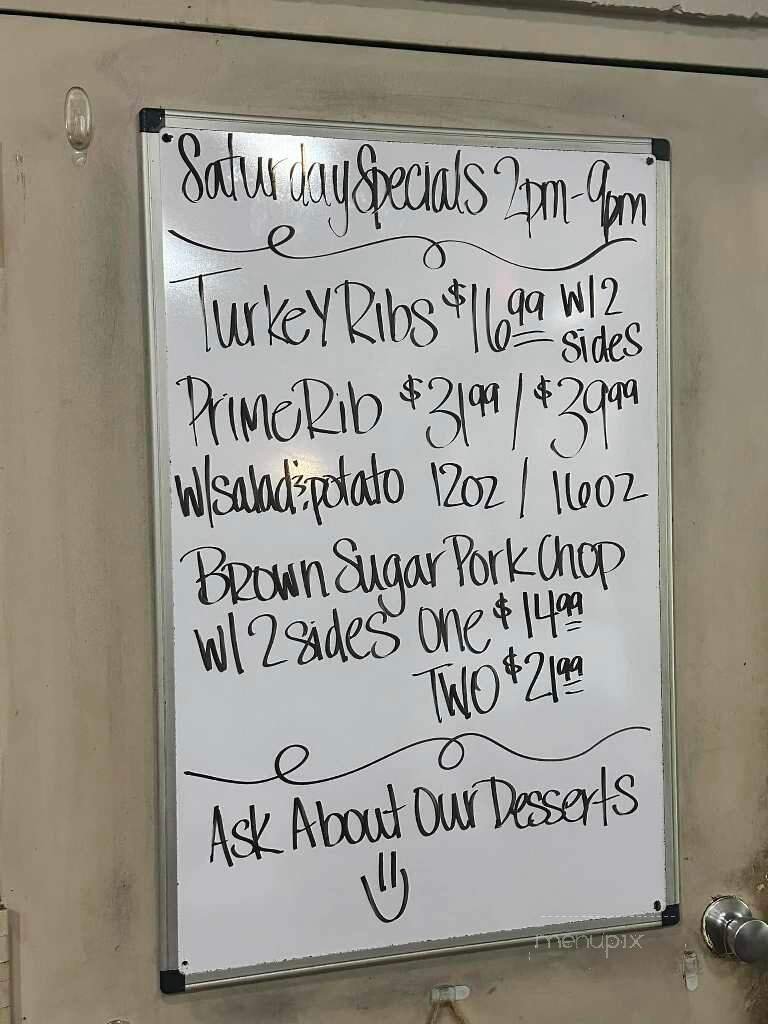 Saturday Specials 2pm-9pm
Turkey Ribs $16.99 w/2
sides
Prime Rib $31.99 / $39.99
w/salad & potato 12oz / 16oz
Brown Sugar Pork Chop
w/ 2 sides one $14.99
Two $21.99
Ask About Our Desserts
menupix